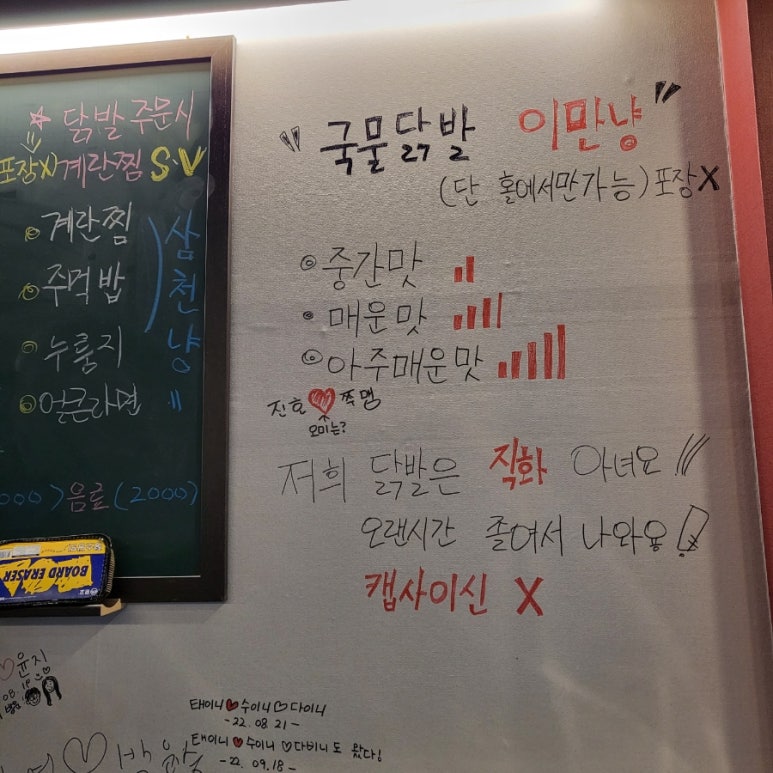 ☆ 닭발 주문시
포장X) 계란찜 S.V
계란찜
주먹밥
누룽지
얼큰라면 "
삼천냥
000) 음료 (2000)
BOARD ERASER
" 국물닭발 이만냥 "
(단 홀에서만가능) 포장X
중간맛
매운맛
아주매운맛
진호 ♥ 쪽맴
오미는?
저희 닭발은 직화 아녀요 !!!
오랜시간 졸여서 나와용!
캡사이신 X
♡윤지
08.18
태이니♥수이니♡다이니
- 22. 08 21 -
태이니♥수이니♡다비니도 왔다!
- 22. 09.18 -